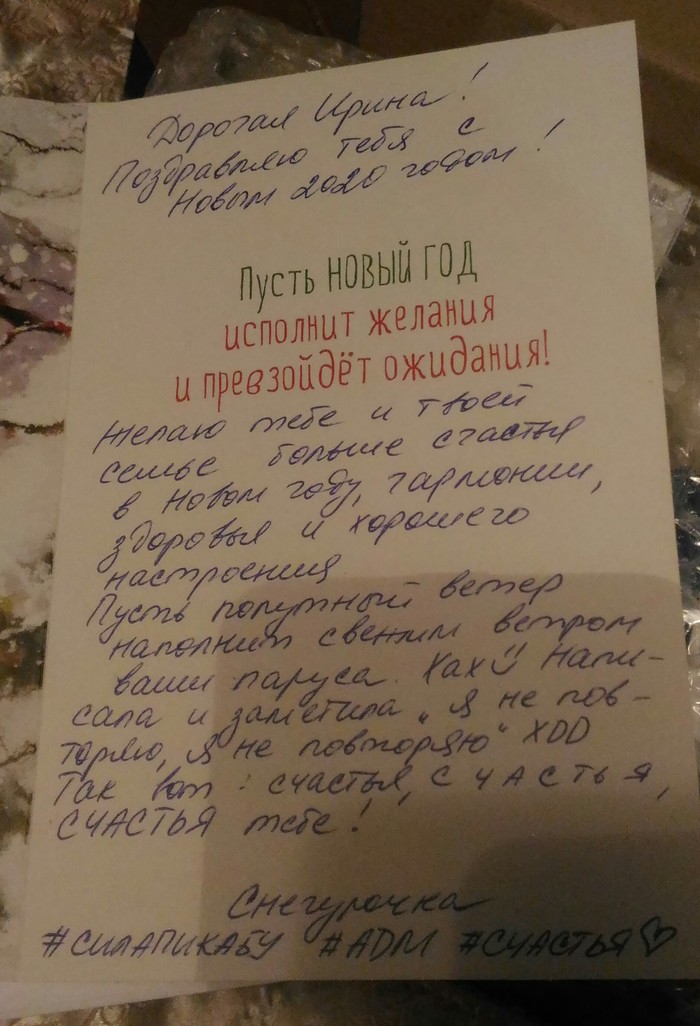 Дорогая Ирина!
Поздравляю тебя с
Новым 2020 годом!
Пусть НОВЫЙ ГОД
исполнит желания
и превзойдёт ожидания!
Желаю тебе и твоей
семье больше счастья
в Новом году, гармонии,
здоровья и хорошего
настроения
Пусть попутный ветер
наполнит свежим ветром
ваши паруса. Хах☺ Напи-
сала и заметила „Я не пов-
торяю, я не повторяю“ XDD
Так вот: счастья, с ч а с т ь я,
СЧАСТЬЯ тебе!
Снегурочка
#СИЛАПИКАБУ #ADM #СЧАСТЬЯ♡